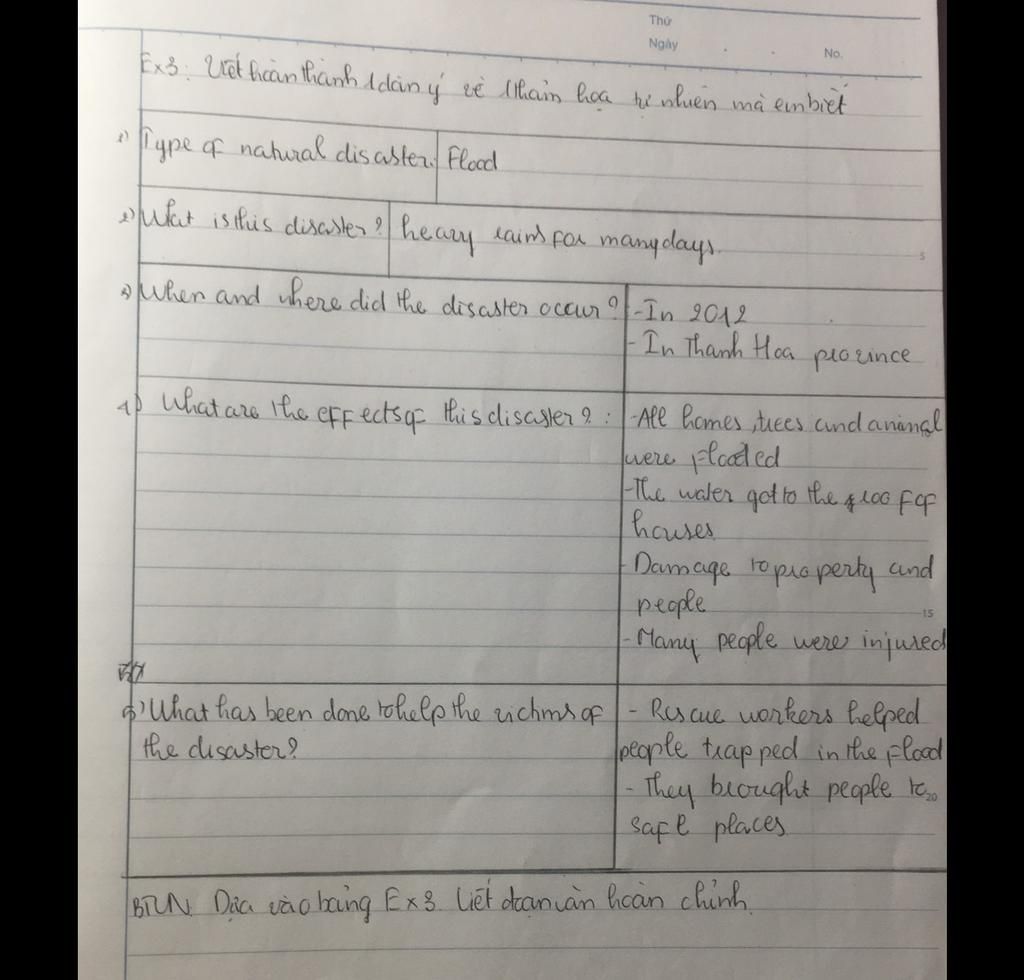 Thứ
Ngày . . No.
Ex3: Viết hoàn thành 1 dàn ý về 1 thảm hoạ tự nhiên mà em biết
1) Type of natural disaster: Flood
2) What is this disaster? heavy rains for many days.
3) When and where did the disaster occur? - In 2012
- In Thanh Hoa province
4) What are the effects of this disaster? : - All homes, trees and animal
were flooded
- The water got to the roof of
houses
- Damage to property and
people
15
- Many people were injured
5) What has been done to help the victims of - Rescue workers helped
the disaster? people trapped in the flood
- They brought people to
20
safe places
BTVN: Dựa vào bảng Ex3. Viết đoạn văn hoàn chỉnh.